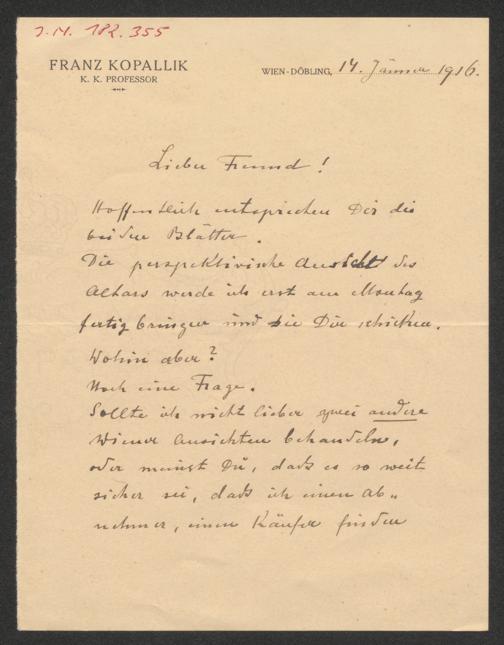 J.N. 182.355
FRANZ KOPALLIK
K. K. PROFESSOR
WIEN-DÖBLING, 14. Jänner 1916.
Lieber Freund!
Hoffentlich entsprechen Dir die
beiden Blätter.
Die perspektivische Ansicht des
Altars werde ich erst am Montag
fertig bringen und sie Dir schicken.
Wohin aber?
Noch eine Frage.
Sollte ich nicht lieber zwei andere
Wiener Ansichten behandeln,
oder meinst Du, daß es so weit
sicher sei, daß ich einen Ab„
nehmer, einen Käufer finden